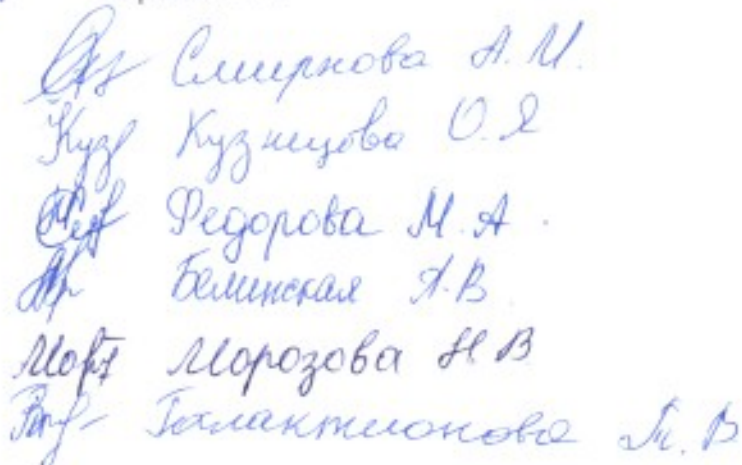 Смирнова А.И.
Куз Кузнецова О.Я
Федорова М.А.
Белинская А.В
Морозова Н В
Галактионова Т. В